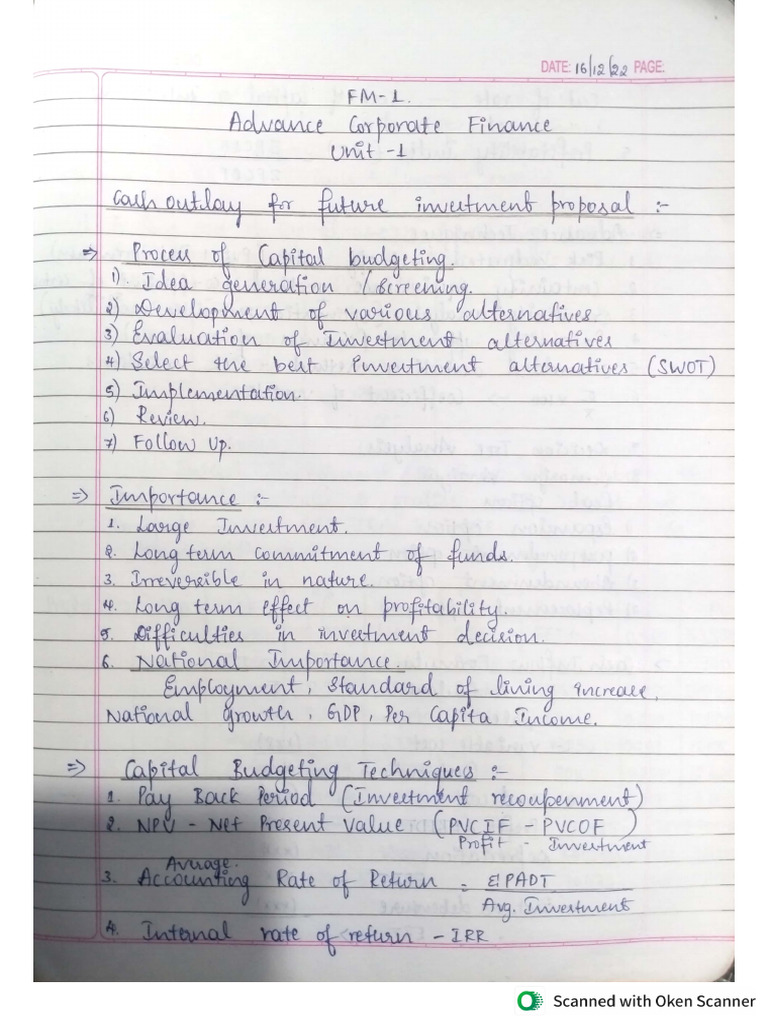 DATE: 16/12/22 PAGE:
FM-1.
Advance Corporate Finance
Unit -1
Cash outlay for future investment proposal :-
⇒ Process of Capital budgeting.
1) Idea generation /Screening.
2) Development of various alternatives.
3) Evaluation of Investment alternatives
4) Select the best investment alternatives (SWOT)
5) Implementation.
6) Review.
7) Follow Up.
⇒ Importance :-
1. Large Investment.
2. Long term commitment of funds.
3. Irreversible in nature.
4. Long term effect on profitability.
5. Difficulties in investment decision.
6. National Importance.
Employment, Standard of lining increase,
National growth, GDP, Per Capita Income.
⇒ Capital Budgeting Techniques :-
1. Pay Back Period (Investment recoupenment)
2. NPV - Net Present Value (PVCIF - PVCOF)
Profit - Investment
Average.
3. Accounting Rate of Return = EPADT
Avg. Investment
4. Internal rate of return - IRR
Scanned with Oken Scanner